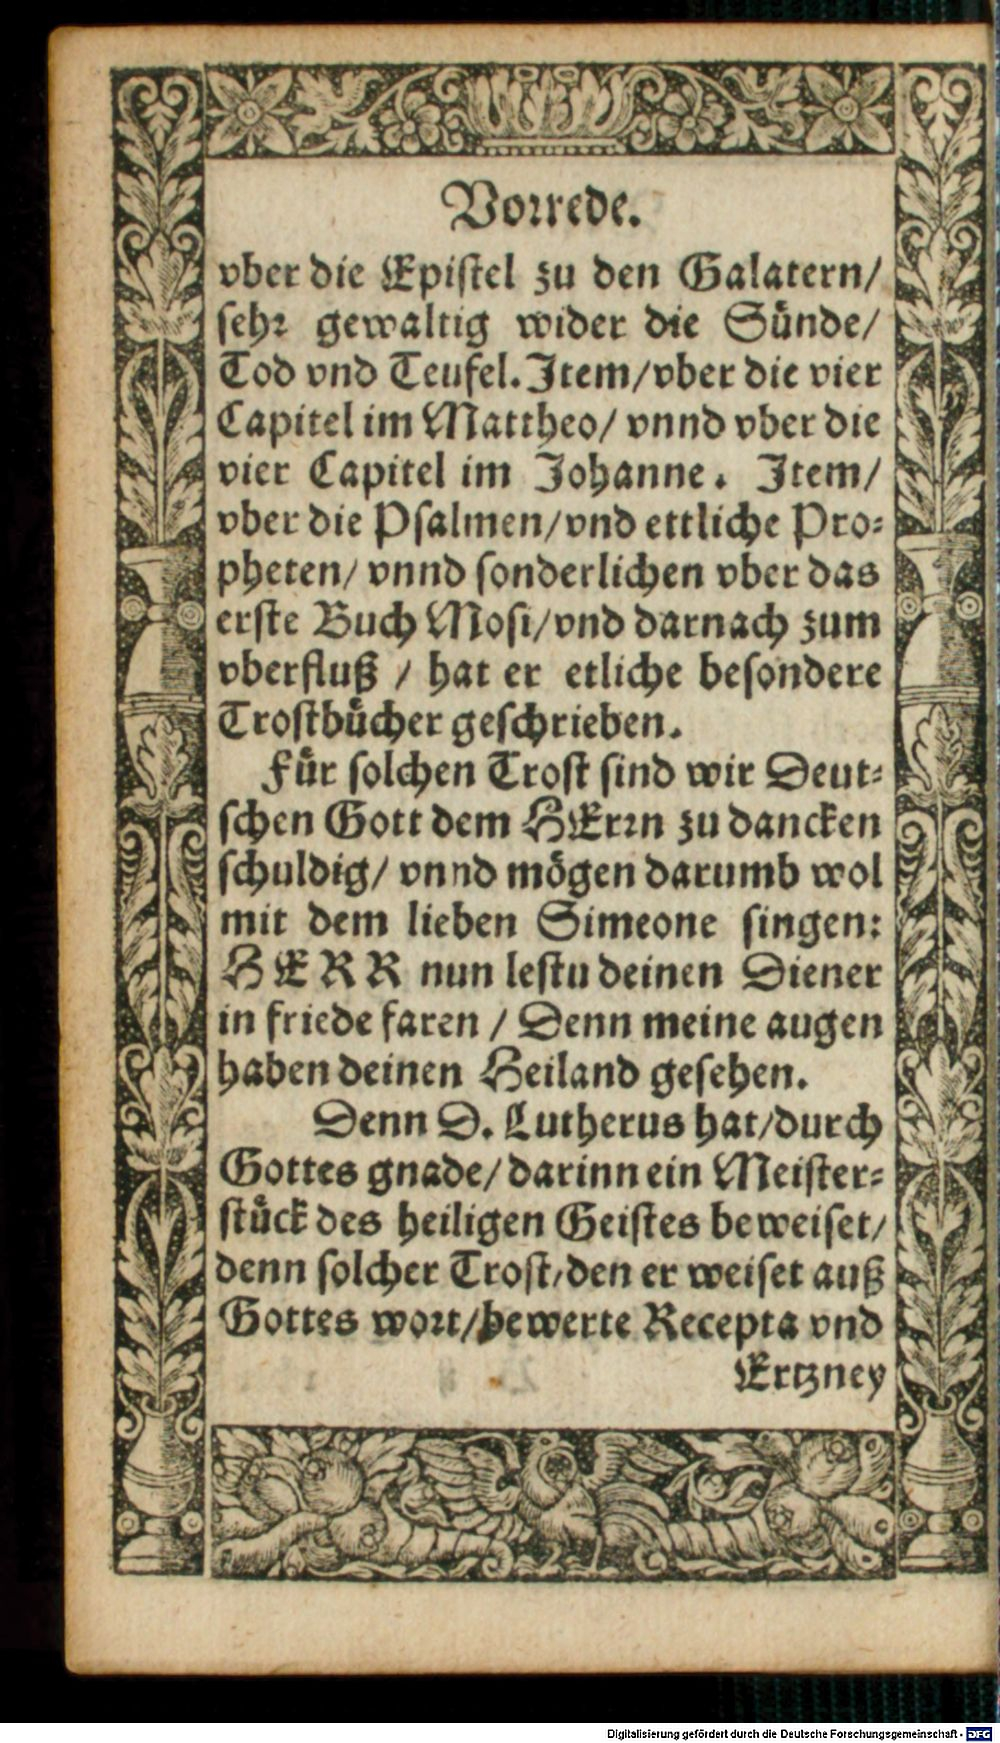 Vorrede.
vber die Epistel zu den Galatern/
sehr gewaltig wider die Sünde/
Tod vnd Teufel. Item/vber die vier
Capitel im Mattheo/ vnnd vber die
vier Capitel im Johanne. Item/
vber die Psalmen/vnd ettliche Pro-
pheten/ vnnd sonderlichen vber das
erste Buch Mosi/vnd darnach zum
vberfluß / hat er etliche besondere
Trostbücher geschrieben.
Für solchen Trost sind wir Deut-
schen Gott dem HErrn zu dancken
schuldig/ vnnd mögen darumb wol
mit dem lieben Simeone singen:
HERR nun lestu deinen Diener
in friede faren / Denn meine augen
haben deinen Heiland gesehen.
Denn D. Lutherus hat/durch
Gottes gnade/ darinn ein Meister-
stück des heiligen Geistes beweiset/
denn solcher Trost/den er weiset auß
Gottes wort/bewerte Recepta vnd
Ertzney
Digitalisierung gefördert durch die Deutsche Forschungsgemeinschaft - DFG